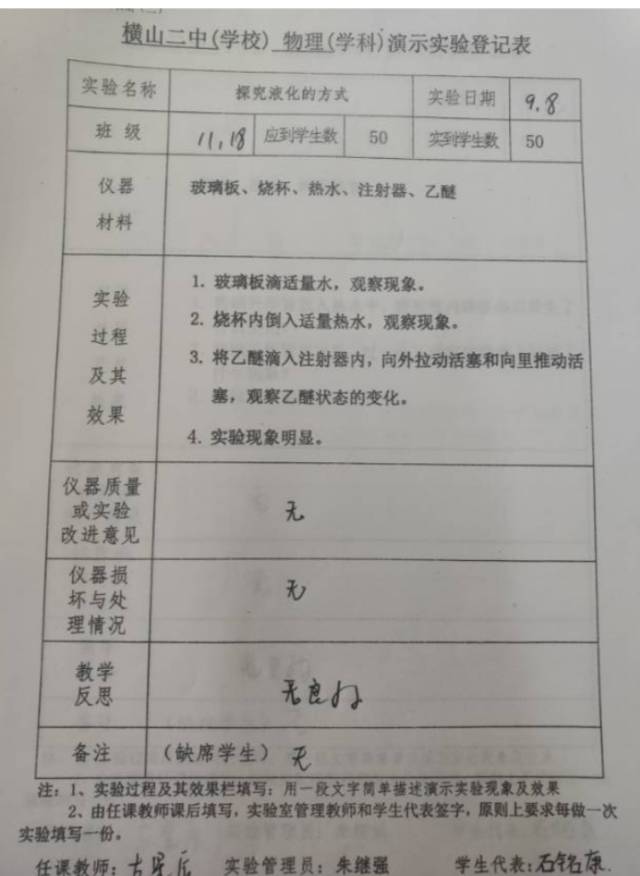 横山二中(学校) 物理(学科)演示实验登记表
实验名称 探究液化的方式 实验日期 9.8
班 级 11,18 应到学生数 50 实到学生数 50
仪器 玻璃板、烧杯、热水、注射器、乙醚
材料
实验
过程
及其
效果
1. 玻璃板滴适量水，观察现象。
2. 烧杯内倒入适量热水，观察现象。
3. 将乙醚滴入注射器内，向外拉动活塞和向里推动活
塞，观察乙醚状态的变化。
4. 实验现象明显。
仪器质量
或实验
改进意见
无
仪器损
坏与处
理情况
无
教学
反思
备注 (缺席学生) 无
注：1、实验过程及其效果栏填写：用一段文字简单描述演示实验现象及效果
2、由任课教师课后填写，实验室管理教师和学生代表签字，原则上要求每做一次
实验填写一份。
任课教师： 实验管理员：朱继强 学生代表:石铭康